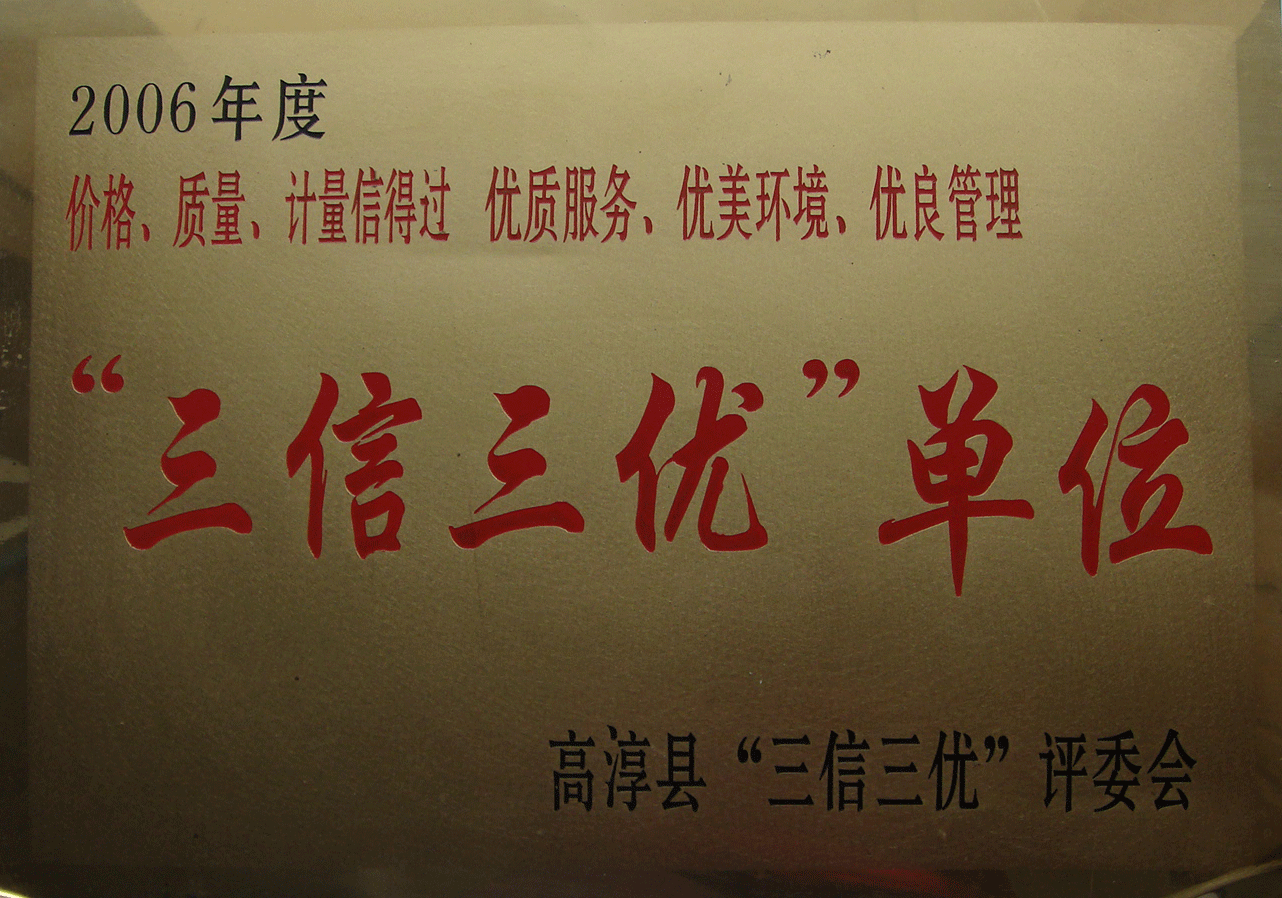 2006年度
价格、质量、计量信得过 优质服务、优美环境、优良管理
“三信三优”单位
高淳县“三信三优”评委会